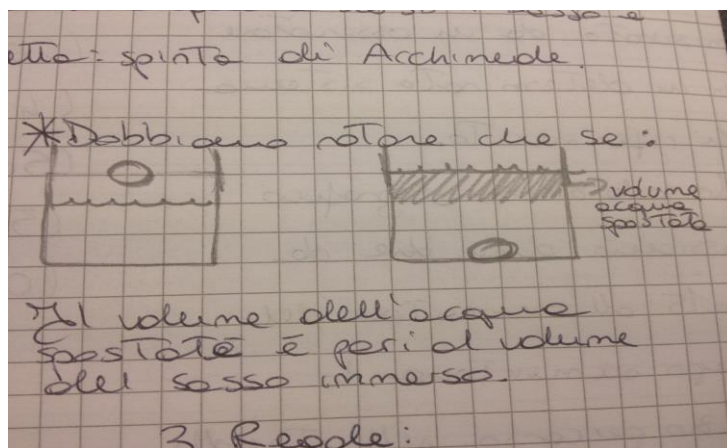 etta: spinta di Acchimede.
*Dobbiamo notare che se:
→ volume
acqua
spostata
Il volume dell'acqua
spostata è pari al volume
del sasso immerso.
3 Regole: